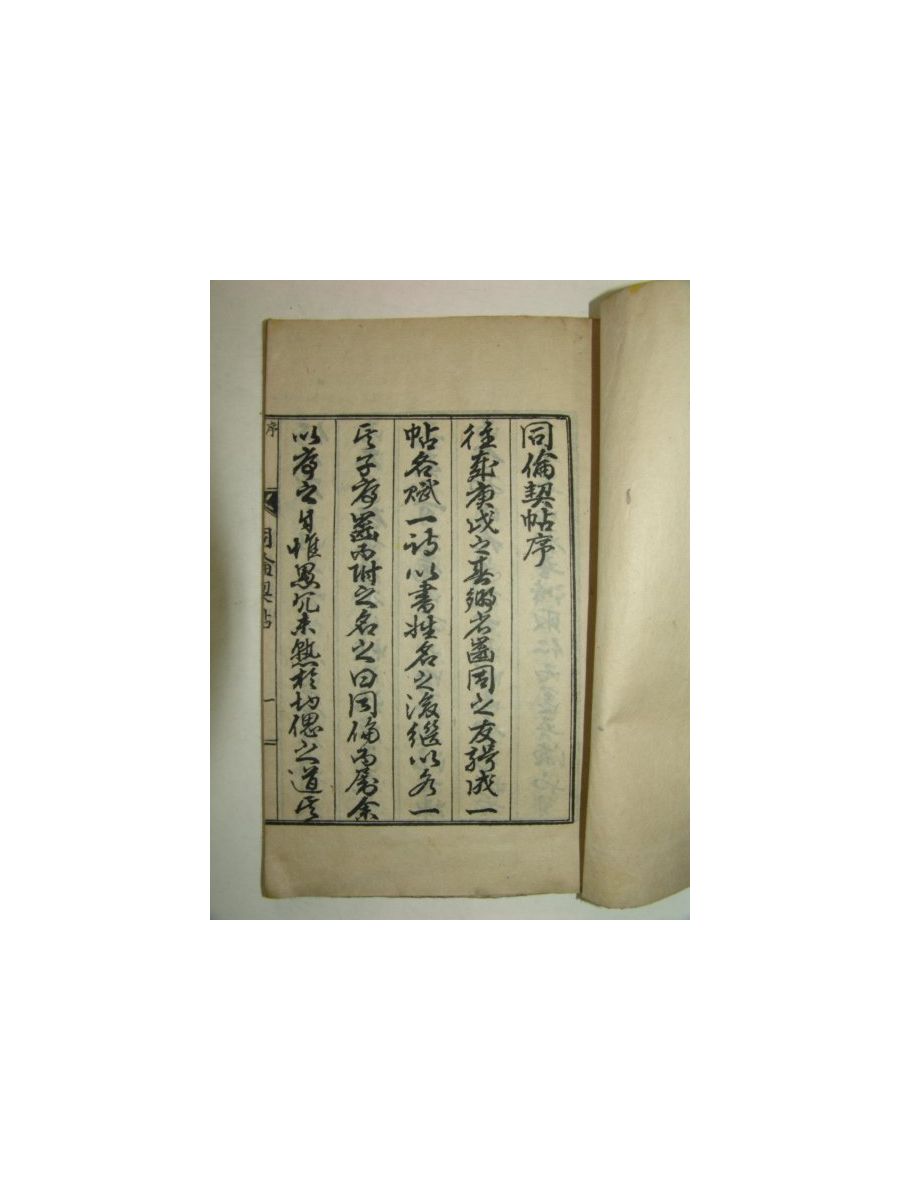 同倫契帖序
往歲庚戌之春鄉省齒同之友得成一
帖各賦一詩以書姓名之後繼以各一
其子序齒而附之名之曰同倫而屬余
以序之自惟愚冗未熟於切偲之道其
序
同倫契帖
一